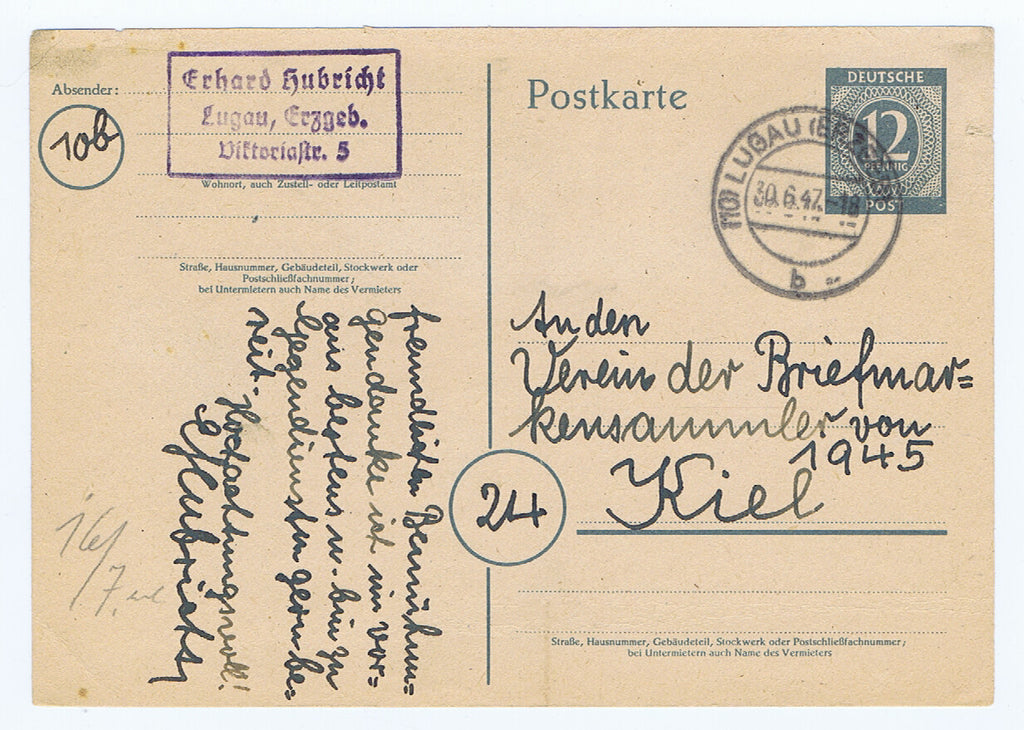 Absender:
Erhard Hubricht
Lugau, Erzgeb.
Viktoriastr. 5
10b
Wohnort, auch Zustell- oder Leitpostamt
Straße, Hausnummer, Gebäudeteil, Stockwerk oder
Postschließfachnummer;
bei Untermietern auch Name des Vermieters
freundlichen Bemühun=
gen danke ich im vor=
aus bestens u. bin zu
Gegendiensten gern be=
reit.
Hochachtungsvoll!
EHubricht
16/
7.
Postkarte
DEUTSCHE
12
PFENNIG
POST
(10) LUGAU (ERZGEB)
30.6.47.-18
b
An den
Verein der Briefmar=
kensammler von
1945
Kiel
24
Straße, Hausnummer, Gebäudeteil, Stockwerk oder Postschließfachnummer;
bei Untermietern auch Name des Vermieters